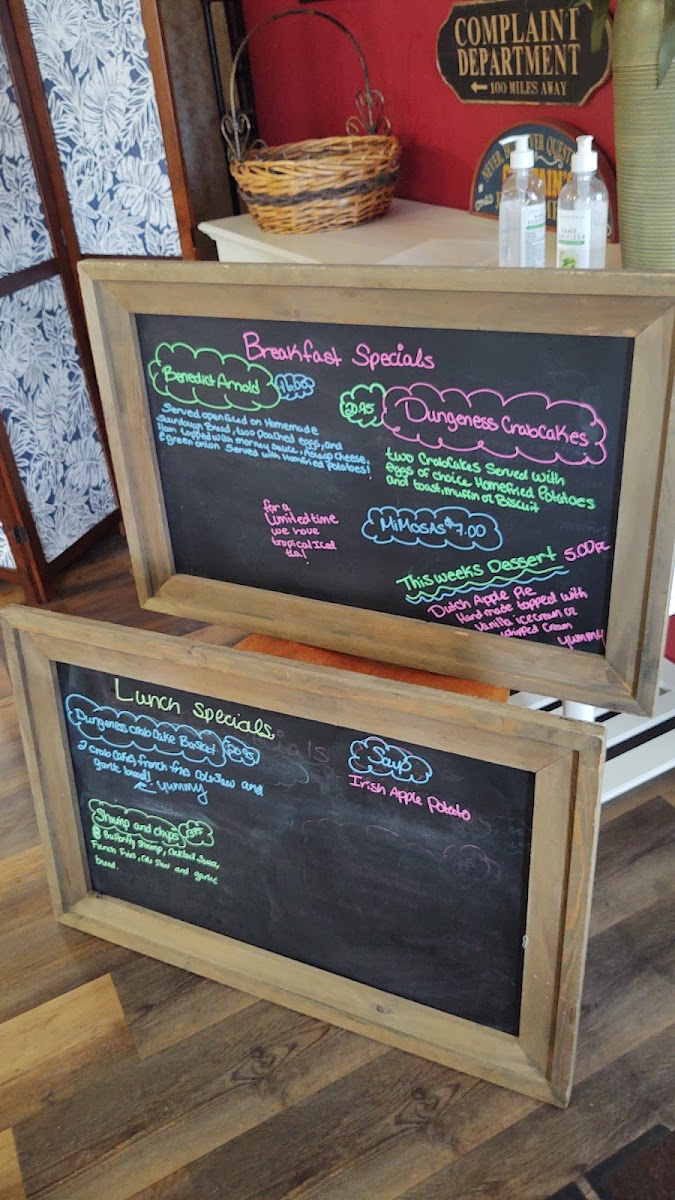 COMPLAINT
DEPARTMENT
100 MILES AWAY
NEVER, NEVER QUEST
HAND
Breakfast Specials
Benedict Arnold 16.00
Served open faced on Homemade
Sourdough Bread, two poached eggs, and
Ham topped with morney sauce, Asiago cheese
& green onion Served with Homefried Potatoes!
20.95 Dungeness Crabcakes
two Crabcakes Served with
eggs of choice Homefried Potatoes
and toast, muffin or Biscuit
for a
Limited time
we have
tropical Iced
tea!
MiMOSAS $7.00
This weeks Dessert 5.00
Dutch Apple Pie
Hand made topped with
Vanilla ice cream or
whipped Cream
yummy
Lunch Specials
Dungeness Crab Cake Basket 20.95
2 crab cakes, french fries Coleslaw and
garlic bread!
yummy
Soup
Irish Apple Potato
Shrimp and chips
8 Butterfly Shrimp, Cocktail Sauce,
French Fries, Cole Slaw and garlic
bread.